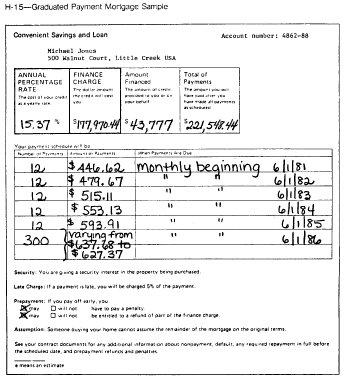 H-15—Graduated Payment Mortgage Sample
Convenient Savings and Loan Account number: 4862-88
Michael Jones
500 Walnut Court, Little Creek USA
ANNUAL PERCENTAGE RATE
The cost of your credit as a yearly rate.
15.37 %
FINANCE CHARGE
The dollar amount the credit will cost you.
$177,970.44
Amount Financed
The amount of credit provided to you or on your behalf.
$43,777
Total of Payments
The amount you will have paid after you have made all payments as scheduled.
$221,548.44
Your payment schedule will be:
Number of Payments Amount of Payments When Payments Are Due
12 $446.62 monthly beginning 6/1/81
12 $479.67 " " 6/1/82
12 $515.11 " " 6/1/83
12 $553.13 " " 6/1/84
12 $593.91 " " 6/1/85
300 varying from $637.68 to $627.37 " " 6/1/86
Security: You are giving a security interest in the property being purchased.
Late Charge: If a payment is late, you will be charged 5% of the payment.
Prepayment: If you pay off early, you
may will not have to pay a penalty.
may will not be entitled to a refund of part of the finance charge.
Assumption: Someone buying your home cannot assume the remainder of the mortgage on the original terms.
See your contract documents for any additional information about nonpayment, default, any required repayment in full before
the scheduled date, and prepayment refunds and penalties.
e means an estimate